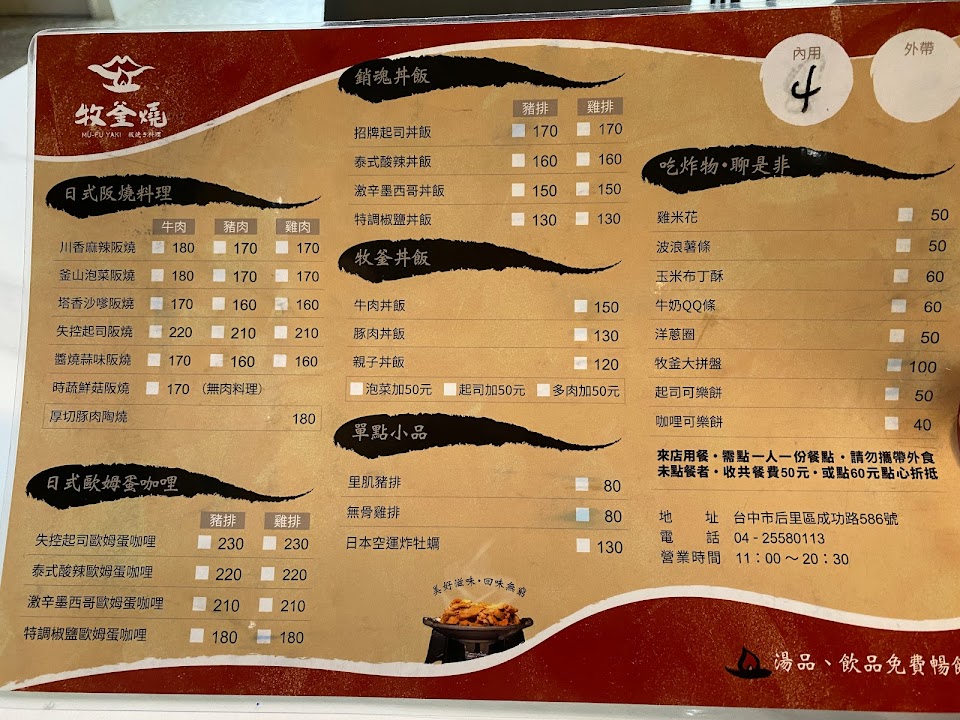 牧釜燒
MU-FU YAKI 鐵燒き料理
內用
4
外帶
日式阪燒料理
牛肉 豬肉 雞肉
川香麻辣阪燒 180 170 170
釜山泡菜阪燒 180 170 170
塔香沙嗲阪燒 170 160 160
失控起司阪燒 220 210 210
醬燒蒜味阪燒 170 160 160
時蔬鮮菇阪燒 170 (無肉料理)
厚切豚肉陶燒 180
日式歐姆蛋咖哩
豬排 雞排
失控起司歐姆蛋咖哩 230 230
泰式酸辣歐姆蛋咖哩 220 220
激辛墨西哥歐姆蛋咖哩 210 210
特調椒鹽歐姆蛋咖哩 180 180
銷魂丼飯
豬排 雞排
招牌起司丼飯 170 170
泰式酸辣丼飯 160 160
激辛墨西哥丼飯 150 150
特調椒鹽丼飯 130 130
牧釜丼飯
牛肉丼飯 150
豚肉丼飯 130
親子丼飯 120
泡菜加50元 起司加50元 多肉加50元
單點小品
里肌豬排 80
無骨雞排 80
日本空運炸牡蠣 130
美好滋味・回味無窮
吃炸物・聊是非
雞米花 50
波浪薯條 50
玉米布丁酥 60
牛奶QQ條 60
洋蔥圈 50
牧釜大拼盤 100
起司可樂餅 50
咖哩可樂餅 40
來店用餐・需點一人一份餐點・請勿攜帶外食
未點餐者・收共餐費50元・或點60元點心折抵
地 址 台中市后里區成功路586號
電 話 04 - 25580113
營業時間 11：00 ～ 20：30
湯品、飲品免費暢飲